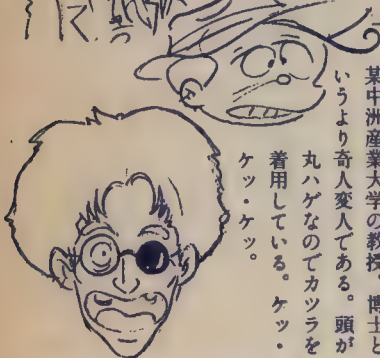 某中洲産業大学の教授　博士と
いうより奇人変人である。頭が
丸ハゲなのでカツラを
着用している。ケッ・
ケッ・ケッ。